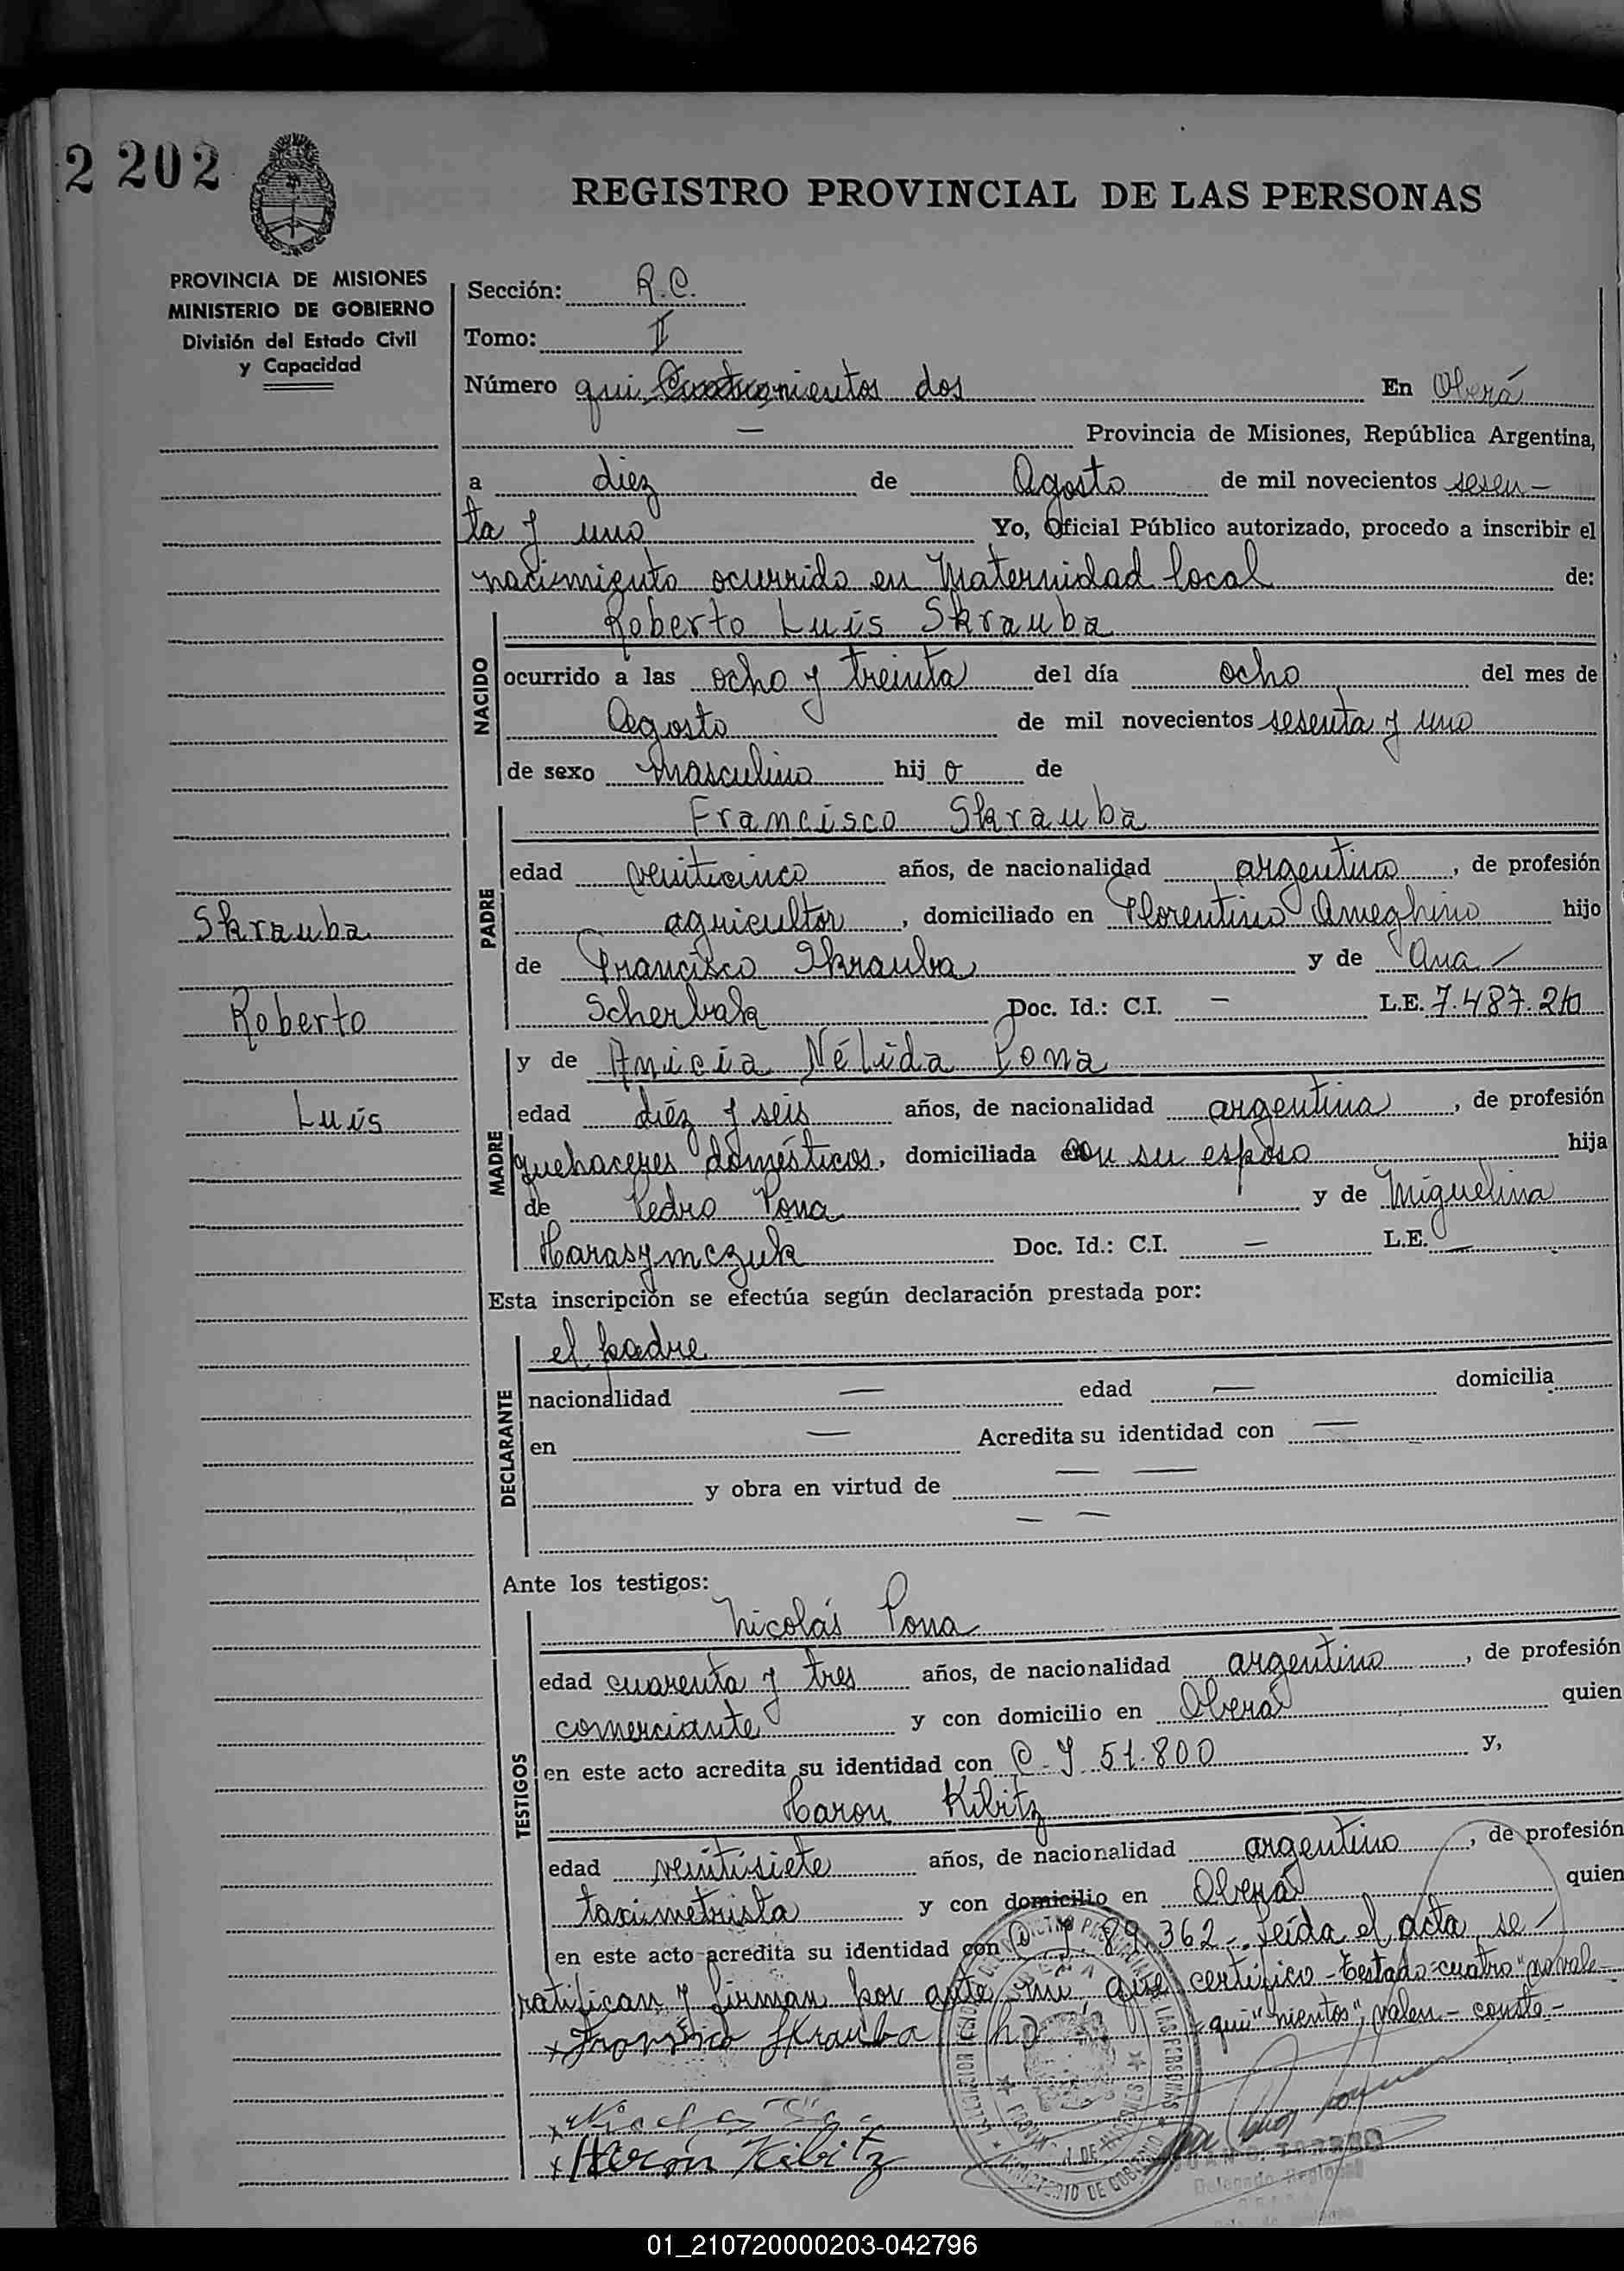 2 202
REGISTRO PROVINCIAL DE LAS PERSONAS
PROVINCIA DE MISIONES
MINISTERIO DE GOBIERNO
División del Estado Civil
y Capacidad
Sección: R.C.
Tomo: I
Número qui Cuatronientos dos En Oberá
— Provincia de Misiones, República Argentina,
a diez de Agosto de mil novecientos sesen-
ta y uno Yo, Oficial Público autorizado, procedo a inscribir el
nacimiento ocurrido en Maternidad local de:
NACIDO
Roberto Luis Skrauba
ocurrido a las ocho y treinta del día ocho del mes de
Agosto de mil novecientos sesenta y uno
de sexo masculino hij o de
PADRE
Francisco Skrauba
edad veinticinco años, de nacionalidad argentino, de profesión
agricultor, domiciliado en Florentino Ameghino hijo
de Francisco Skrauba y de Ana
Scherbak Doc. Id.: C.I. — L.E. 7.487.210
MADRE
y de Anicia Nélida Pona
edad diéz y seis años, de nacionalidad argentina, de profesión
quehaceres domésticos, domiciliada con su esposo hija
de Pedro Pona y de Miguelina
Harasymczuk Doc. Id.: C.I. — L.E. —
Skrauba
Roberto
Luis
Esta inscripción se efectúa según declaración prestada por:
DECLARANTE
el padre
nacionalidad — edad — domicilia
en — Acredita su identidad con —
y obra en virtud de — —
— —
Ante los testigos:
TESTIGOS
Nicolás Pona
edad cuarenta y tres años, de nacionalidad argentino, de profesión
comerciante y con domicilio en Oberá quien
en este acto acredita su identidad con C. I 51.800 y,
Haron Kibitz
edad veintisiete años, de nacionalidad argentino, de profesión
taximetrista y con domicilio en Oberá quien
en este acto acredita su identidad con C. I 89.362-. Leída el acta se
ratifican y firman por ante mi, que certifico - Testado: cuatro" no vale-
qui" nientos", valen - conste -
Francisco Skrauba
Harón Kibitz
MINISTERIO DE GOBIERNO
Delegado Regional
01_210720000203-042796